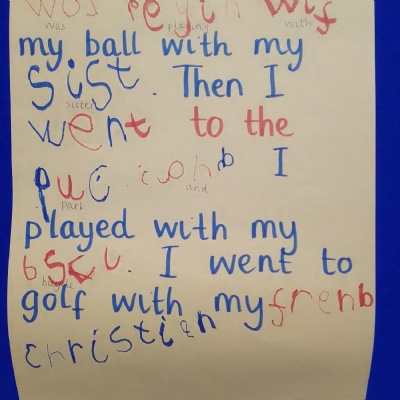 was playing wif
was playing with
my ball with my
sist. Then I
sister
went to the
I
park and
played with my
bscu. I went to
golf with my frenb
christian